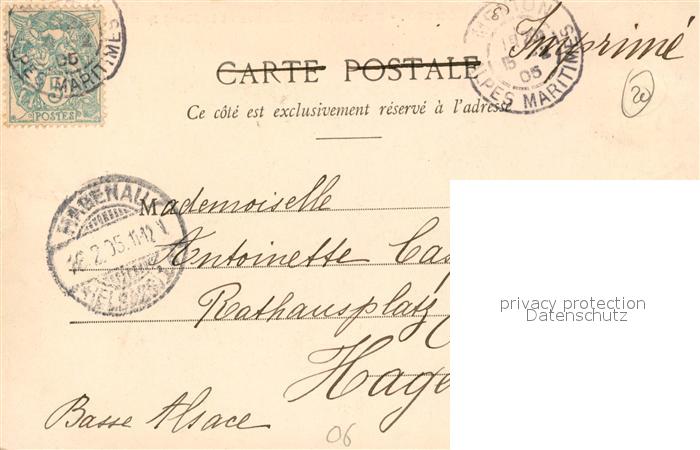 05
ALPES MARITIMES
5
POSTES
MENTON
05
ALPES MARITIMES
Imprimé
CARTE POSTALE
Ce côté est exclusivement réservé à l'adresse
20
HAGENAU
16.2.05.11-12 V
(ELSASS)
Mademoiselle
Antoinette Cas
Rathausplatz
Hage
Basse Alsace
06
privacy protection
Datenschutz